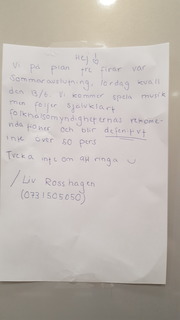 Hej!
Vi på plan tre firar vår
sommaravslutning, lördag kväll
den 13/6. Vi kommer spela musik
men följer självklart
folkhälsomyndigheternas rekomm-
endationer och blir definitivt
inte över 50 pers
Tveka inte om att ringa
/ Liv Rosshagen
(0731505050)